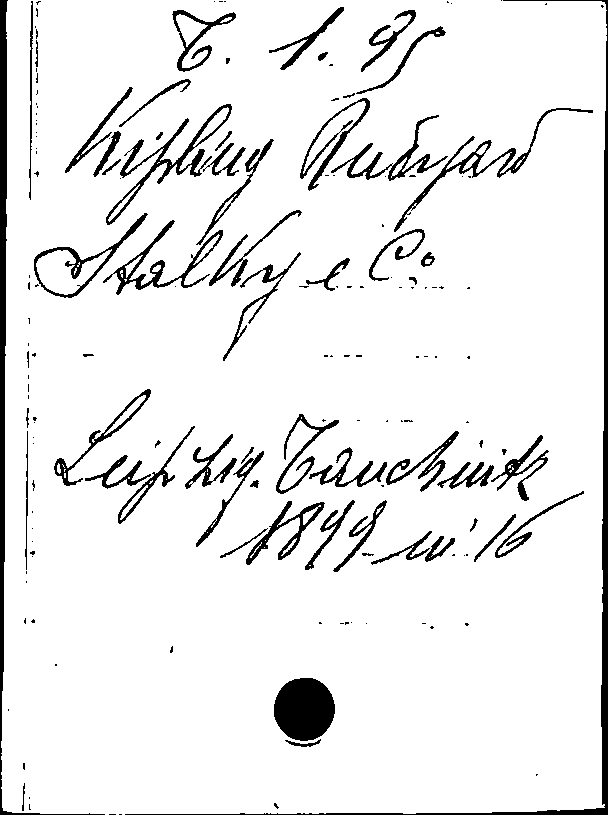 T. 1. 95
Kipling Rudyard
Stalky e C.º
Leipzig. Tauchnitz
1899 in 16